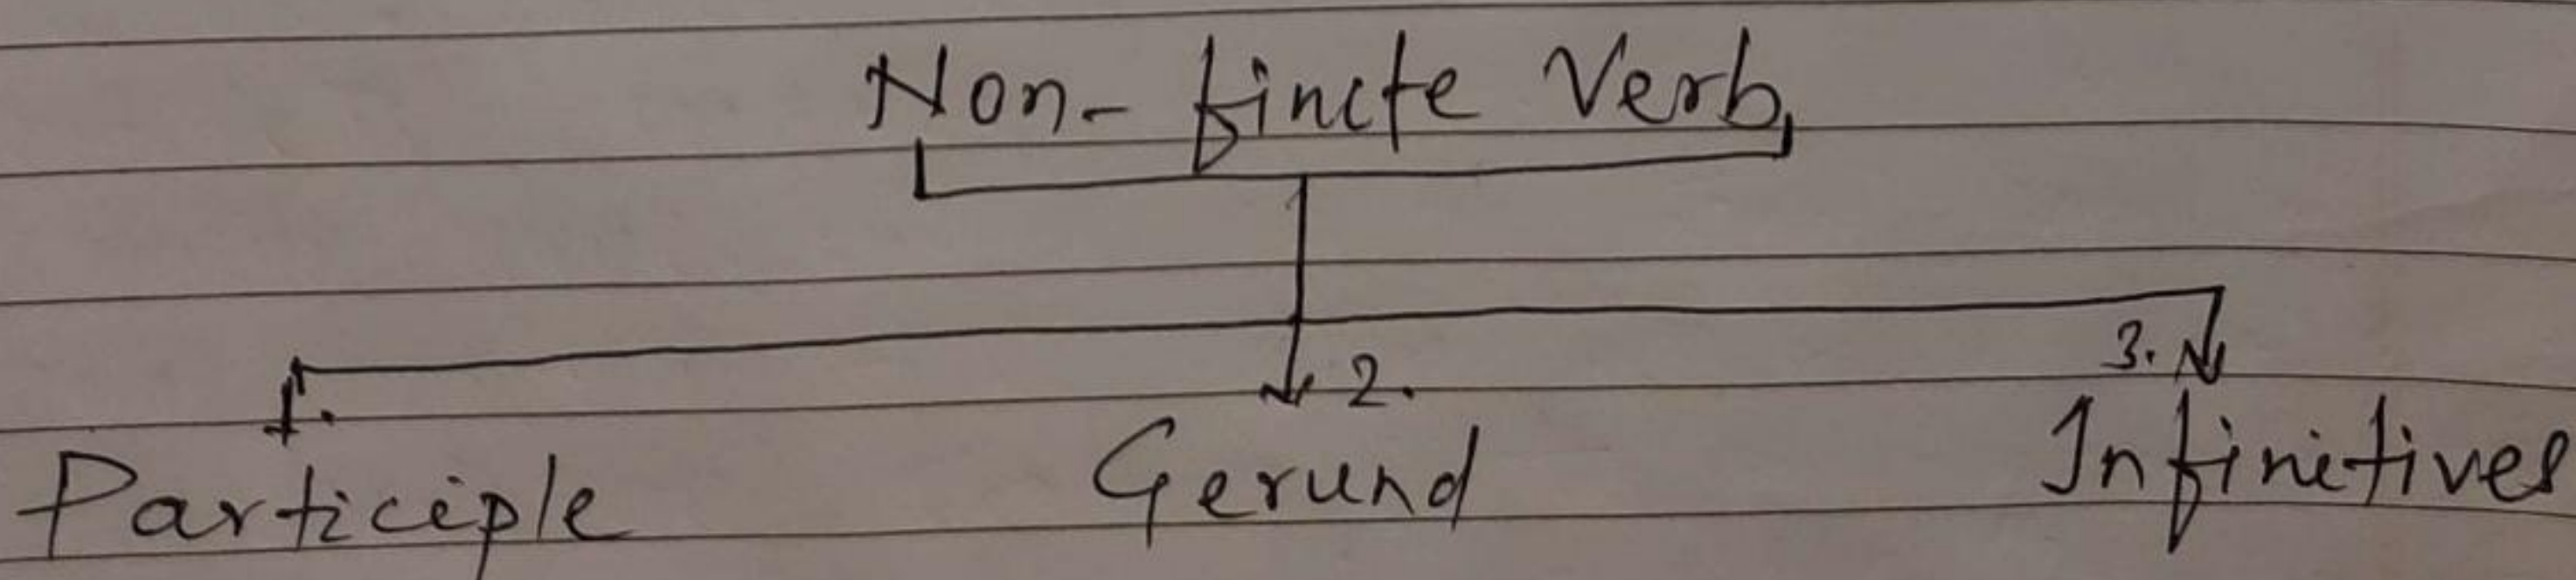 Non-finite Verb
1. 2. 3.
Participle Gerund Infinitives